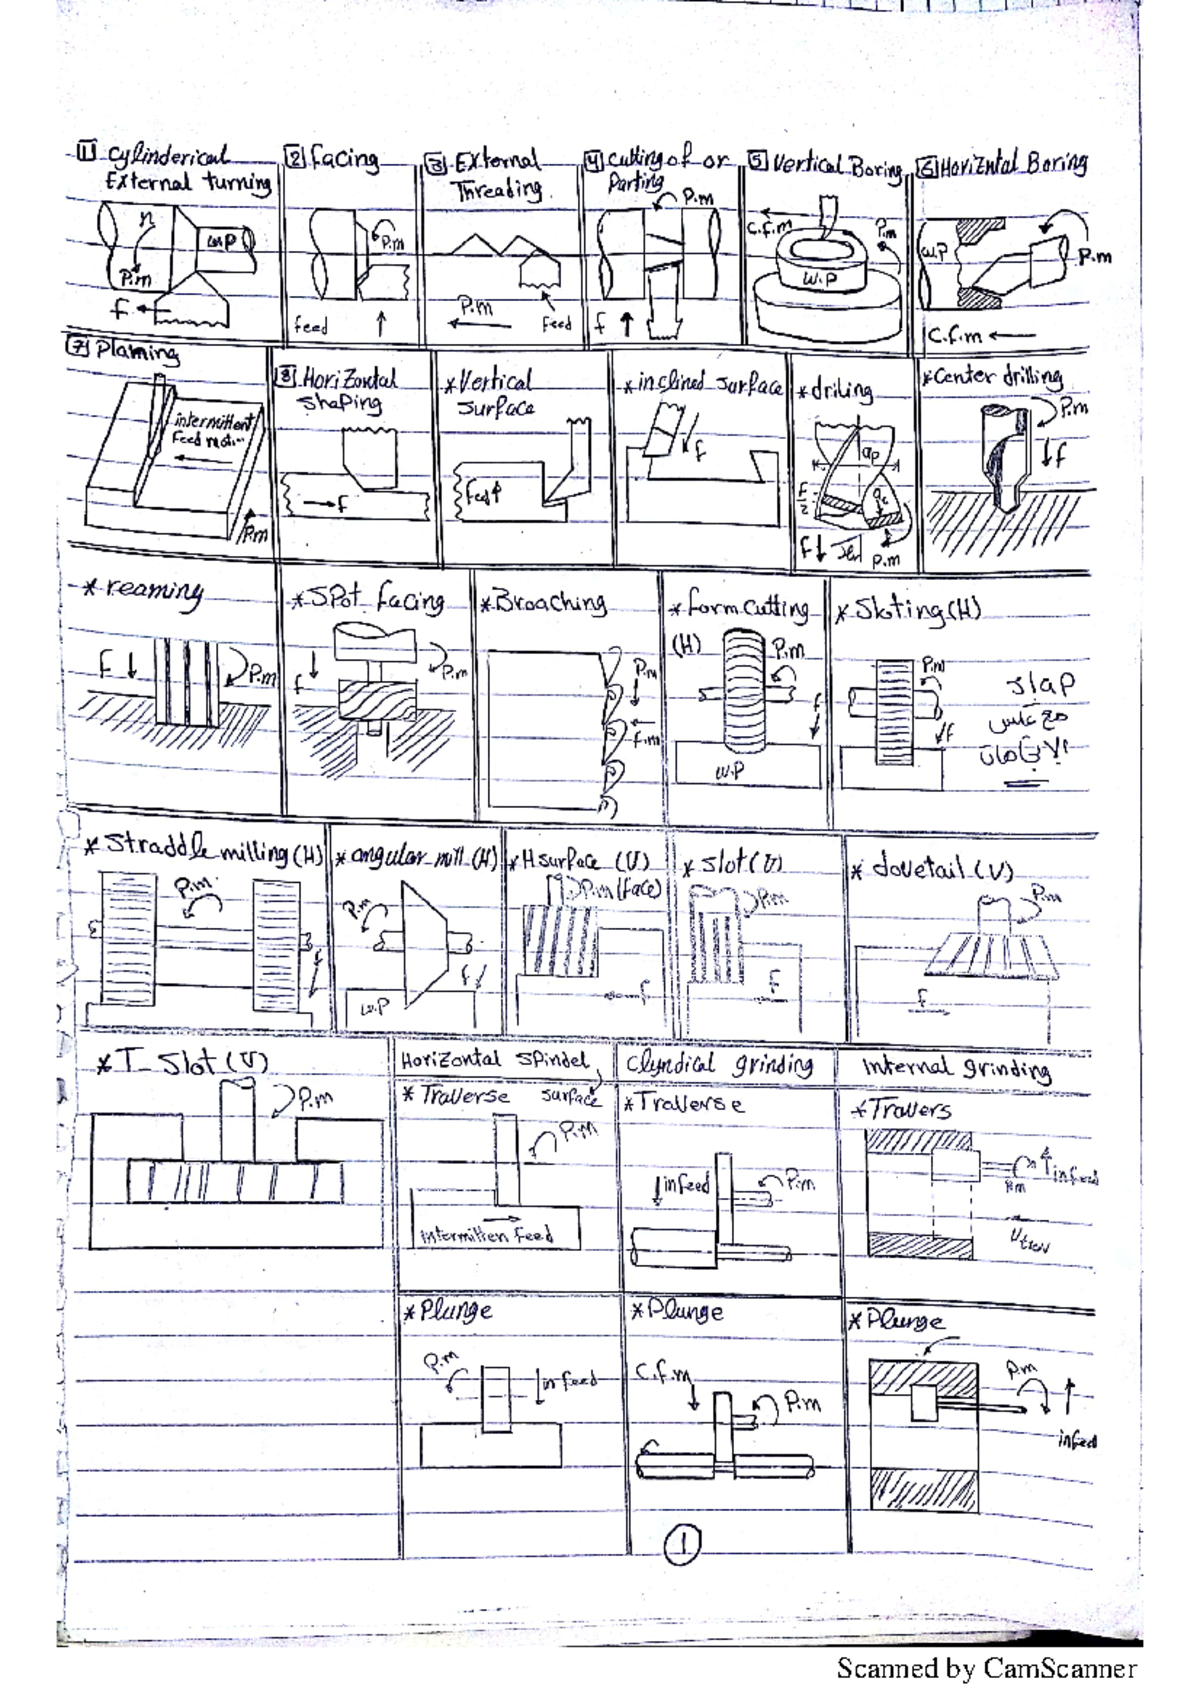 1 Cylinderical
External turning
n
w.P
P.m
f
2 facing
P.m
feed
3 External
Threading
P.m
feed
4 Cutting of or
Parting
P.m
f
5 Vertical Boring
C.f.m
P.m
w.P
6 Horizntal Boring
w.P
P.m
C.f.m
7 Planning
intermittent
feed motion
P.m
8 Horizontal
shaping
f
* Vertical
surface
feed
* inclined surface
f
* driling
ap
f/2
f
P.m
* Center drilling
P.m
f
* reaming
f
P.m
* SPot facing
f
P.m
* Broaching
P.m
f.m
* form cutting
(H)
P.m
f
w.P
* Sloting (H)
P.m
f
* Straddle milling (H)
P.m
f
* angular mill. (H)
P.m
f
w.P
* H surface (V)
P.m (face)
f
* slot (V)
P.m
f
* dovetail (V)
P.m
f
* T_ slot (V)
P.m
Horizontal spindel,
surface
* Traverse
P.m
intermitten feed
Clyndical grinding
* Traverse
infeed
P.m
Internal grinding
* Travers
P.m
infeed
Utrav
* Plunge
P.m
in feed
* Plunge
C.f.m
P.m
* Plunge
P.m
infeed
1
Scanned by CamScanner